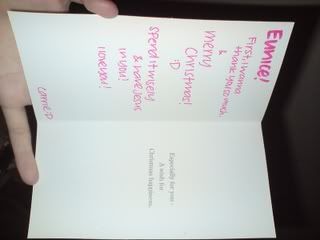 Eunice!
First, I wanna
thank you so much
&
merry
Christmas!
:D
spend it wisely
& have Jesus
in you!
I love you!
Carrie :D
Especially for you -
A wish for
Christmas happiness.